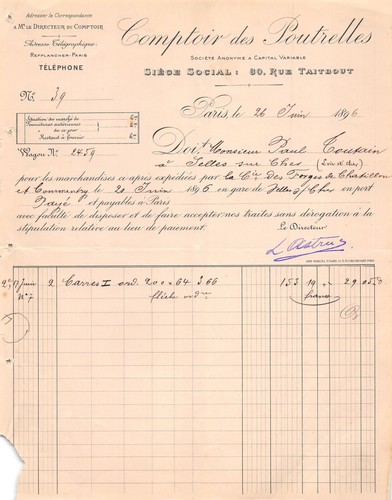 Adresser la Correspondance
A Mr LE DIRECTEUR DU COMPTOIR
Adresse Télégraphique:
REPPLANCHER-PARIS
TÉLÉPHONE
Comptoir des Poutrelles
SOCIÉTÉ ANONYME A CAPITAL VARIABLE
SIÈGE SOCIAL: 80, RUE TAITBOUT
No. 39
Paris le 26 Juin 1896
Wagon No 2459
Doit Monsieur Paul Toutain
à Selles sur Cher (Loir et Cher)
pour les marchandises ci-après expédiées par la Cie Des Forges de Chatillon
et Commentry le 20 Juin 1896 en gare de Selles s/Cher en port
Payé et payables à Paris
avec faculté de disposer et de faire accepter nos traites sans dérogation à la
stipulation relative au lieu de paiement.
Le Directeur
17 Juin 2 Carrés I ord. 200 = 64 3.66 153 19 29.05
No 7 france